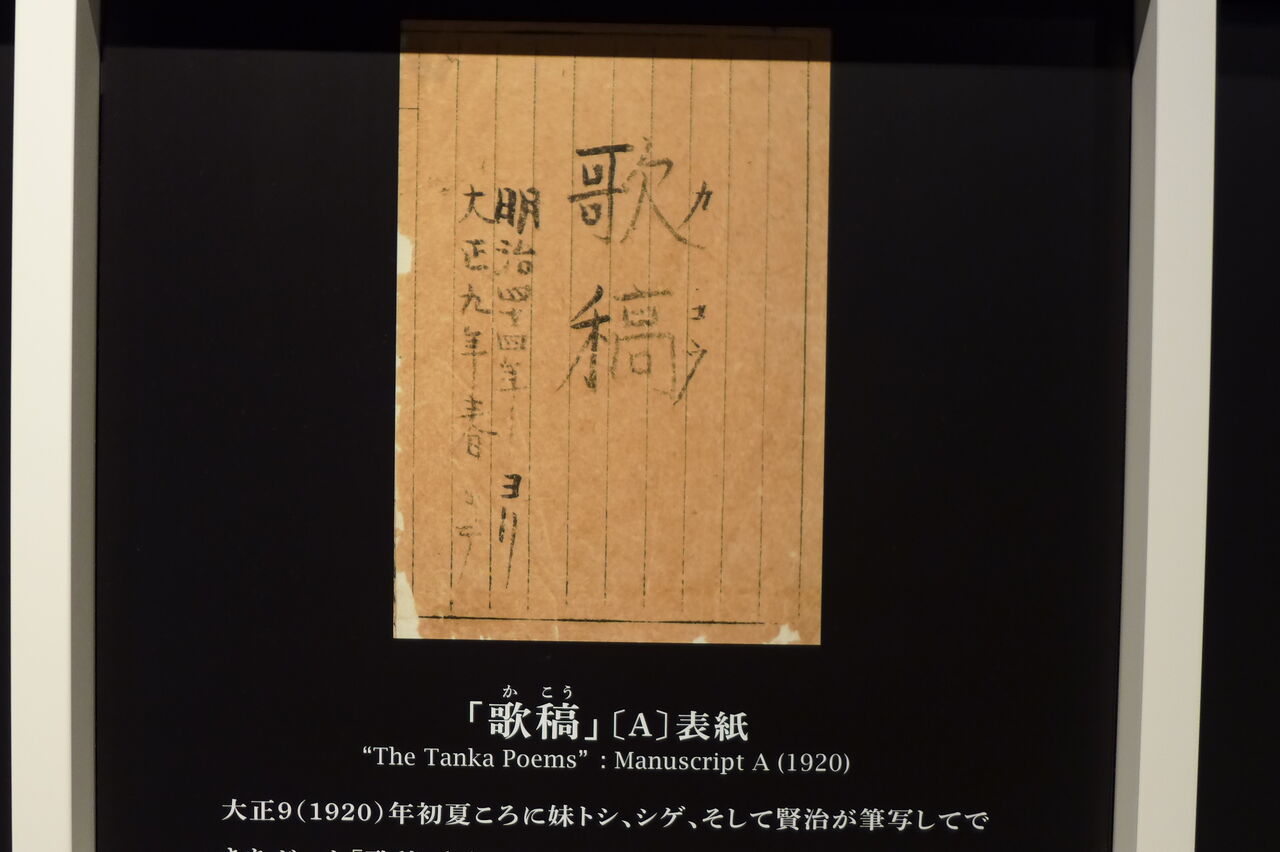 歌稿
カコウ
明治四十四年ヨリ
大正九年春
かこう
「歌稿」〔A〕表紙
“The Tanka Poems” : Manuscript A (1920)
大正9(1920)年初夏ころに妹トシ、シゲ、そして賢治が筆写してで